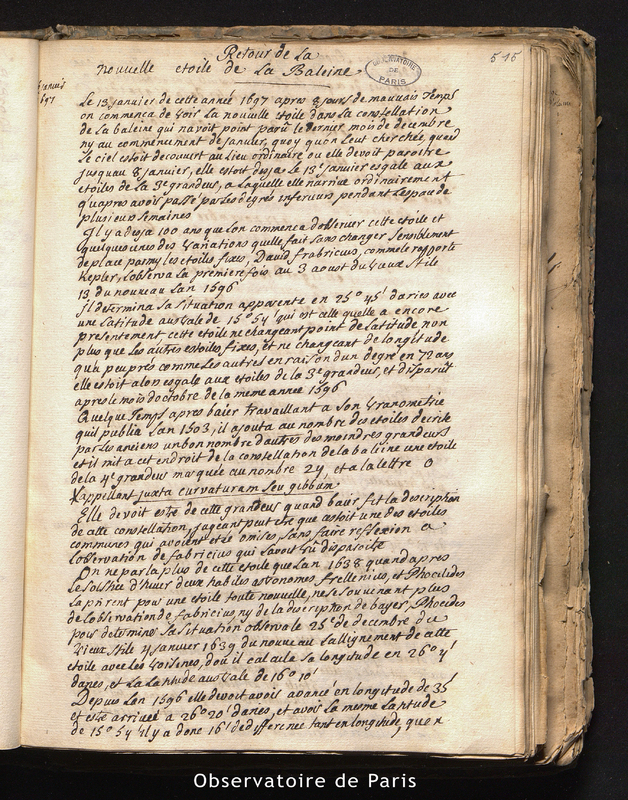 Retour de La
515
nouvelle etoile de La Baleine
OBSERVATOIRE
DE
PARIS
Janvier
1697
Le 13 janvier de cette année 1697 apres 8 jours de mauvais Temps
on commenca de voir La nouvelle etoile dans La constellation
de La baleine qui navoit point parû le dernier mois de decembre
ny au commencement de janvier, quoy quon Leut cherchée quand
Le ciel estoit decouvert au Lieu ordinaire ou elle devoit paroitre
jusquau 8 janvier, elle estoit desja le 13e janvier esgale aux
etoiles de La 3e grandeur, a Laquelle elle narrive ordinairement
quapres avoir passé par les degrés inferieurs pendant Lespace de
plusieurs Semaines
Il y a desja 100 ans que lon commenca dobserver cette etoile et
quelques unes des variations quelle fait sans changer Sensiblement
de place parmy les etoiles fixes, David frabricius, comme le rapporte
Kepler, Lobserva La premiere fois au 3 aoust du vieux Stile
13 du nouveau Lan 1596
Il determina sa situation apparente en 25° 45' daries avec
une Latitude australe de 15° 54' qui est celle quelle a encore
presentement, cette etoile ne changeant point de latitude non
plus que Les autres estoiles fixes, et ne changeant de longitude
qua peu prés comme Les autres en raison dun degré en 72 ans
elle estoit alors esgale aux etoiles de la 3e grandeur, et disparut
apres le mois doctobre de la meme année 1596
Quelque Temps apres baier travaillant a Son Uranometrie
quil publia Lan 1603, il ajouta au nombre des etoiles decrite
par Les anciens un bon nombre dautres des moindres grandeurs
et il mit a cet endroit de la constellation de la baleine une etoile
de la 4e grandeur marquée au nombre 24 et a la lettre O
Lappellant juxta curvaturam seu gibbum
Elle devoit estre de cette grandeur quand baier fit la description
de cette constellation, jugeant peut etre que cestoit une des etoiles
communes qui avoient etée omises, sans faire reflexion a
Lobservation de fabricius qui Lavoit vû disparoitre
On ne parla plus de cette etoile que Lan 1638 quand apres
Le solstice dhiver deux habiles astronomes, frellenius, et Phocilides
La prirent pour une etoile toute nouvelle, ne se souvenant plus
de Lobservation de fabricius ny de la description de bayer, Phocides
pour determiner sa situation observa le 25e de decembre du
vieux stile 4 janvier 1639 du nouveau Lallignement de cette
etoile avec Les voisines, dou il calcula sa longitude en 26° 4'
daries, et La Latitude australe de 16° 10'
Depuis Lan 1596 elle devoit avoir avancé en longitude de 35'
et estre arrivée a 26° 20' daries, et avoir La mesme Latitude
de 15° 54' il y a donc 16' de difference tant en longitude, quen